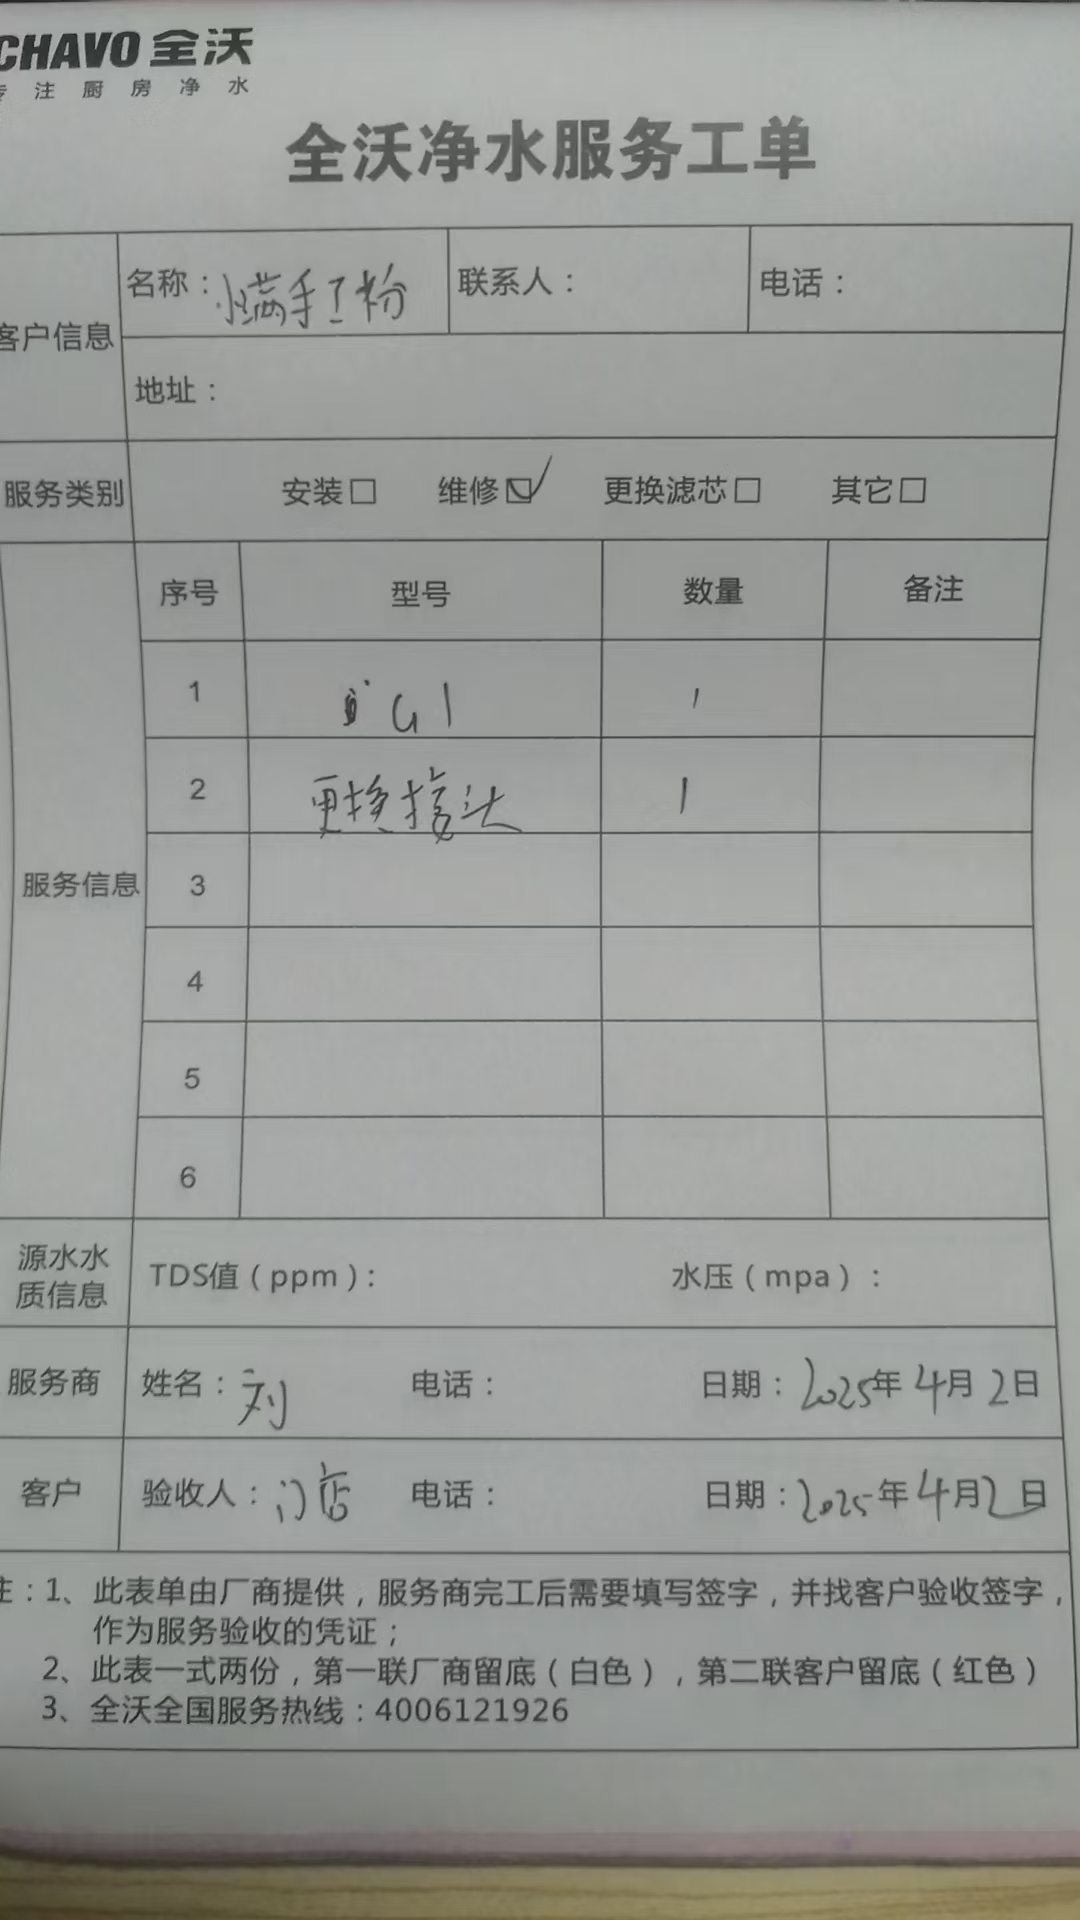 CHAVO 全沃
专注厨房净水
全沃净水服务工单
客户信息 名称：小满手工粉 联系人： 电话：
地址：
服务类别 安装□ 维修☑ 更换滤芯□ 其它□
服务信息 序号 型号 数量 备注
1 G1 1
2 更换接头 1
3
4
5
6
源水水质信息 TDS值（ppm）： 水压（mpa）：
服务商 姓名：刘 电话： 日期：2025年4月2日
客户 验收人：门店 电话： 日期：2025年4月2日
注：1、此表单由厂商提供，服务商完工后需要填写签字，并找客户验收签字，
作为服务验收的凭证；
2、此表一式两份，第一联厂商留底（白色），第二联客户留底（红色）
3、全沃全国服务热线：4006121926